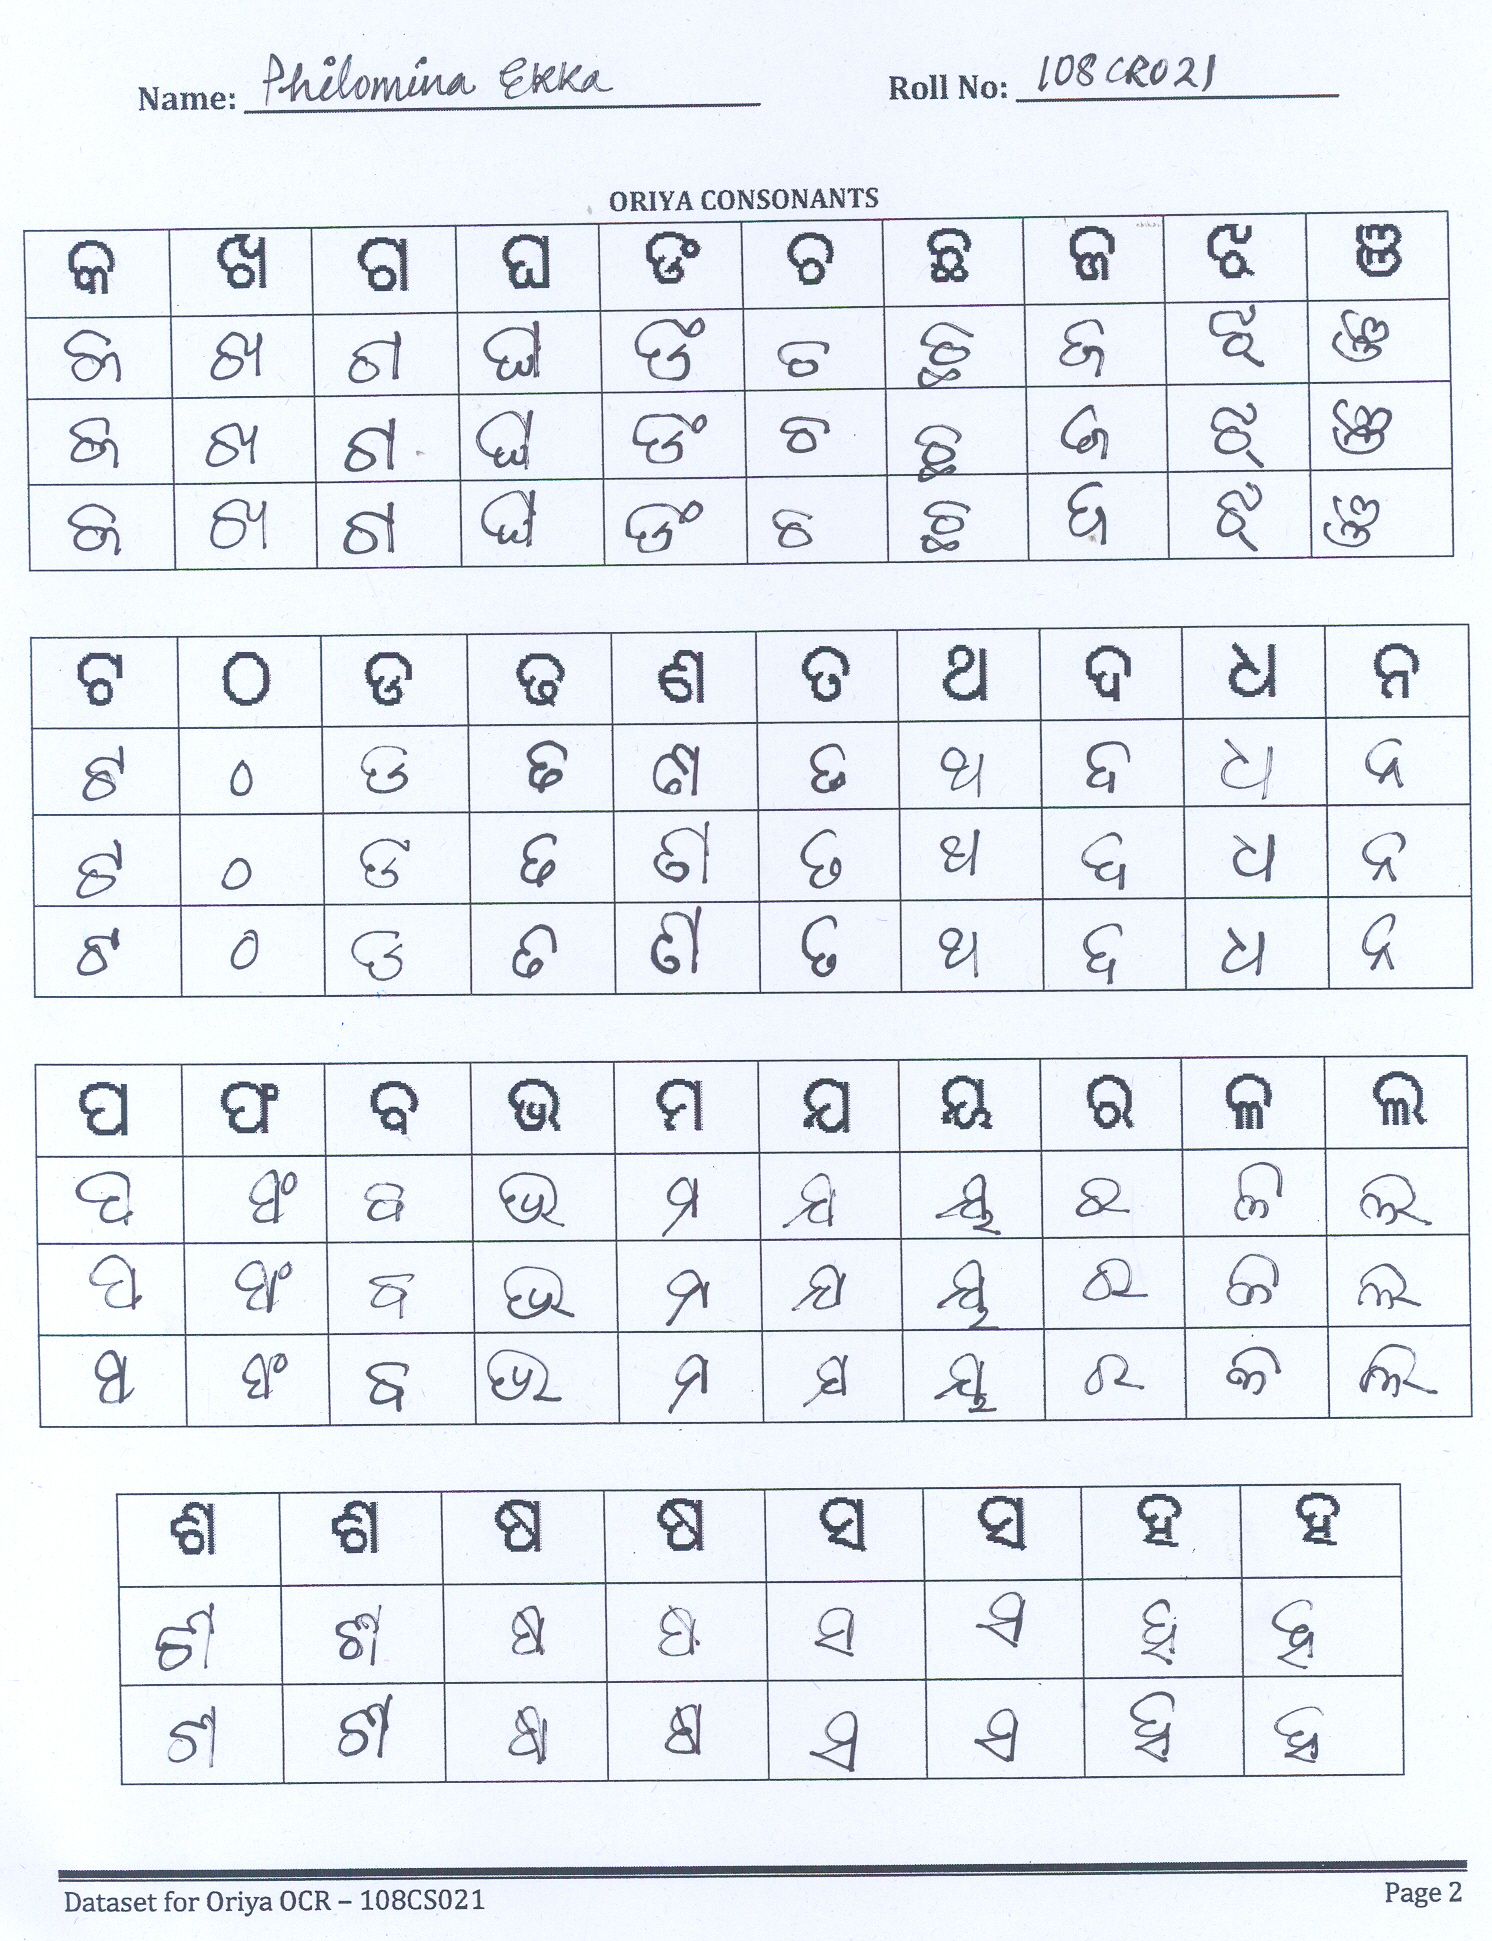 Name: Philomina Ekka Roll No: 108CR021
ORIYA CONSONANTS
କ ଖ ଗ ଘ ଙ ଚ ଛ ଜ ଝ ଞ
କ ଖ ଗ ଘ ଙ ଚ ଛ ଜ ଝ ଞ
କ ଖ ଗ ଘ ଙ ଚ ଛ ଜ ଝ ଞ
କ ଖ ଗ ଘ ଙ ଚ ଛ ଜ ଝ ଞ
ଟ ଠ ଡ ଢ ଣ ତ ଥ ଦ ଧ ନ
ଟ ଠ ଡ ଢ ଣ ତ ଥ ଦ ଧ ନ
ଟ ଠ ଡ ଢ ଣ ତ ଥ ଦ ଧ ନ
ଟ ଠ ଡ ଢ ଣ ତ ଥ ଦ ଧ ନ
ପ ଫ ବ ଭ ମ ଯ ୟ ର ଳ ଲ
ପ ଫ ବ ଭ ମ ଯ ୟ ର ଳ ଲ
ପ ଫ ବ ଭ ମ ଯ ୟ ର ଳ ଲ
ପ ଫ ବ ଭ ମ ଯ ୟ ର ଳ ଲ
ଶ ଶ ଷ ଷ ସ ସ ହ ହ
ଶ ଶ ଷ ଷ ସ ସ ହ ହ
ଶ ଶ ଷ ଷ ସ ସ ହ ହ
Dataset for Oriya OCR – 108CS021 Page 2